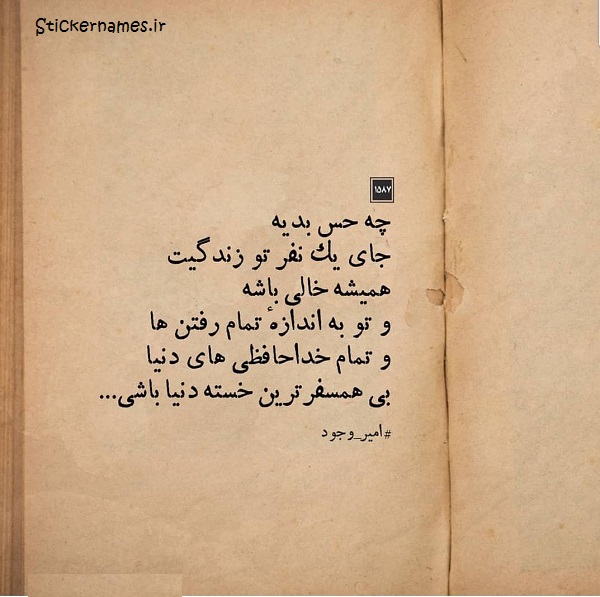 Stickernames.ir
۱۵۸۷
چه حس بدیه
جای یك نفر تو زندگیت
همیشه خالی باشه
و تو به اندازهٔ تمام رفتن ها
و تمام خداحافظی های دنیا
بی همسفر ترین خسته دنیا باشی...
#امیر_وجود